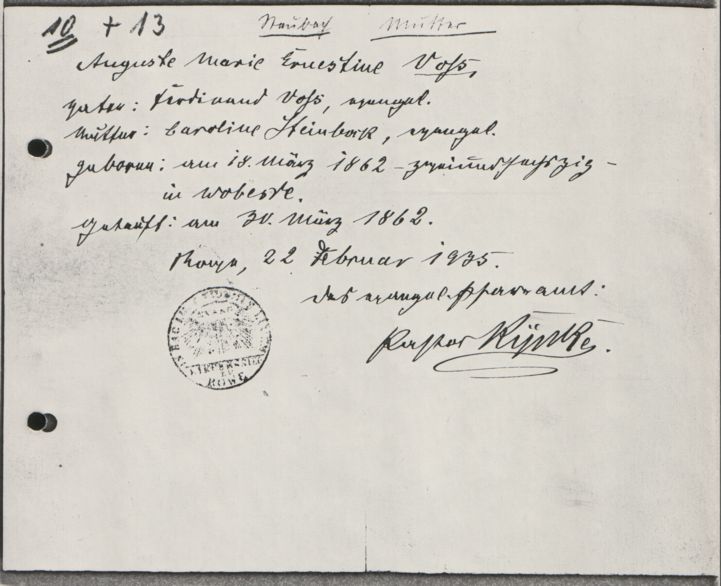 10 + 13 Mutter
Auguste Marie Ernestine Voß,
Vater: Ferdinand Voß, evangel.
Mutter: Caroline Steinbock, evangel.
geboren: am 18. März 1862 – zweiundsechszig –
in Wobesde.
Getauft: am 30. März 1862.
Rowe, 22 Februar 1935.
Das evangel. Pfarramt:
Pastor
KIRCHENSIEGEL
ZU
ROWE